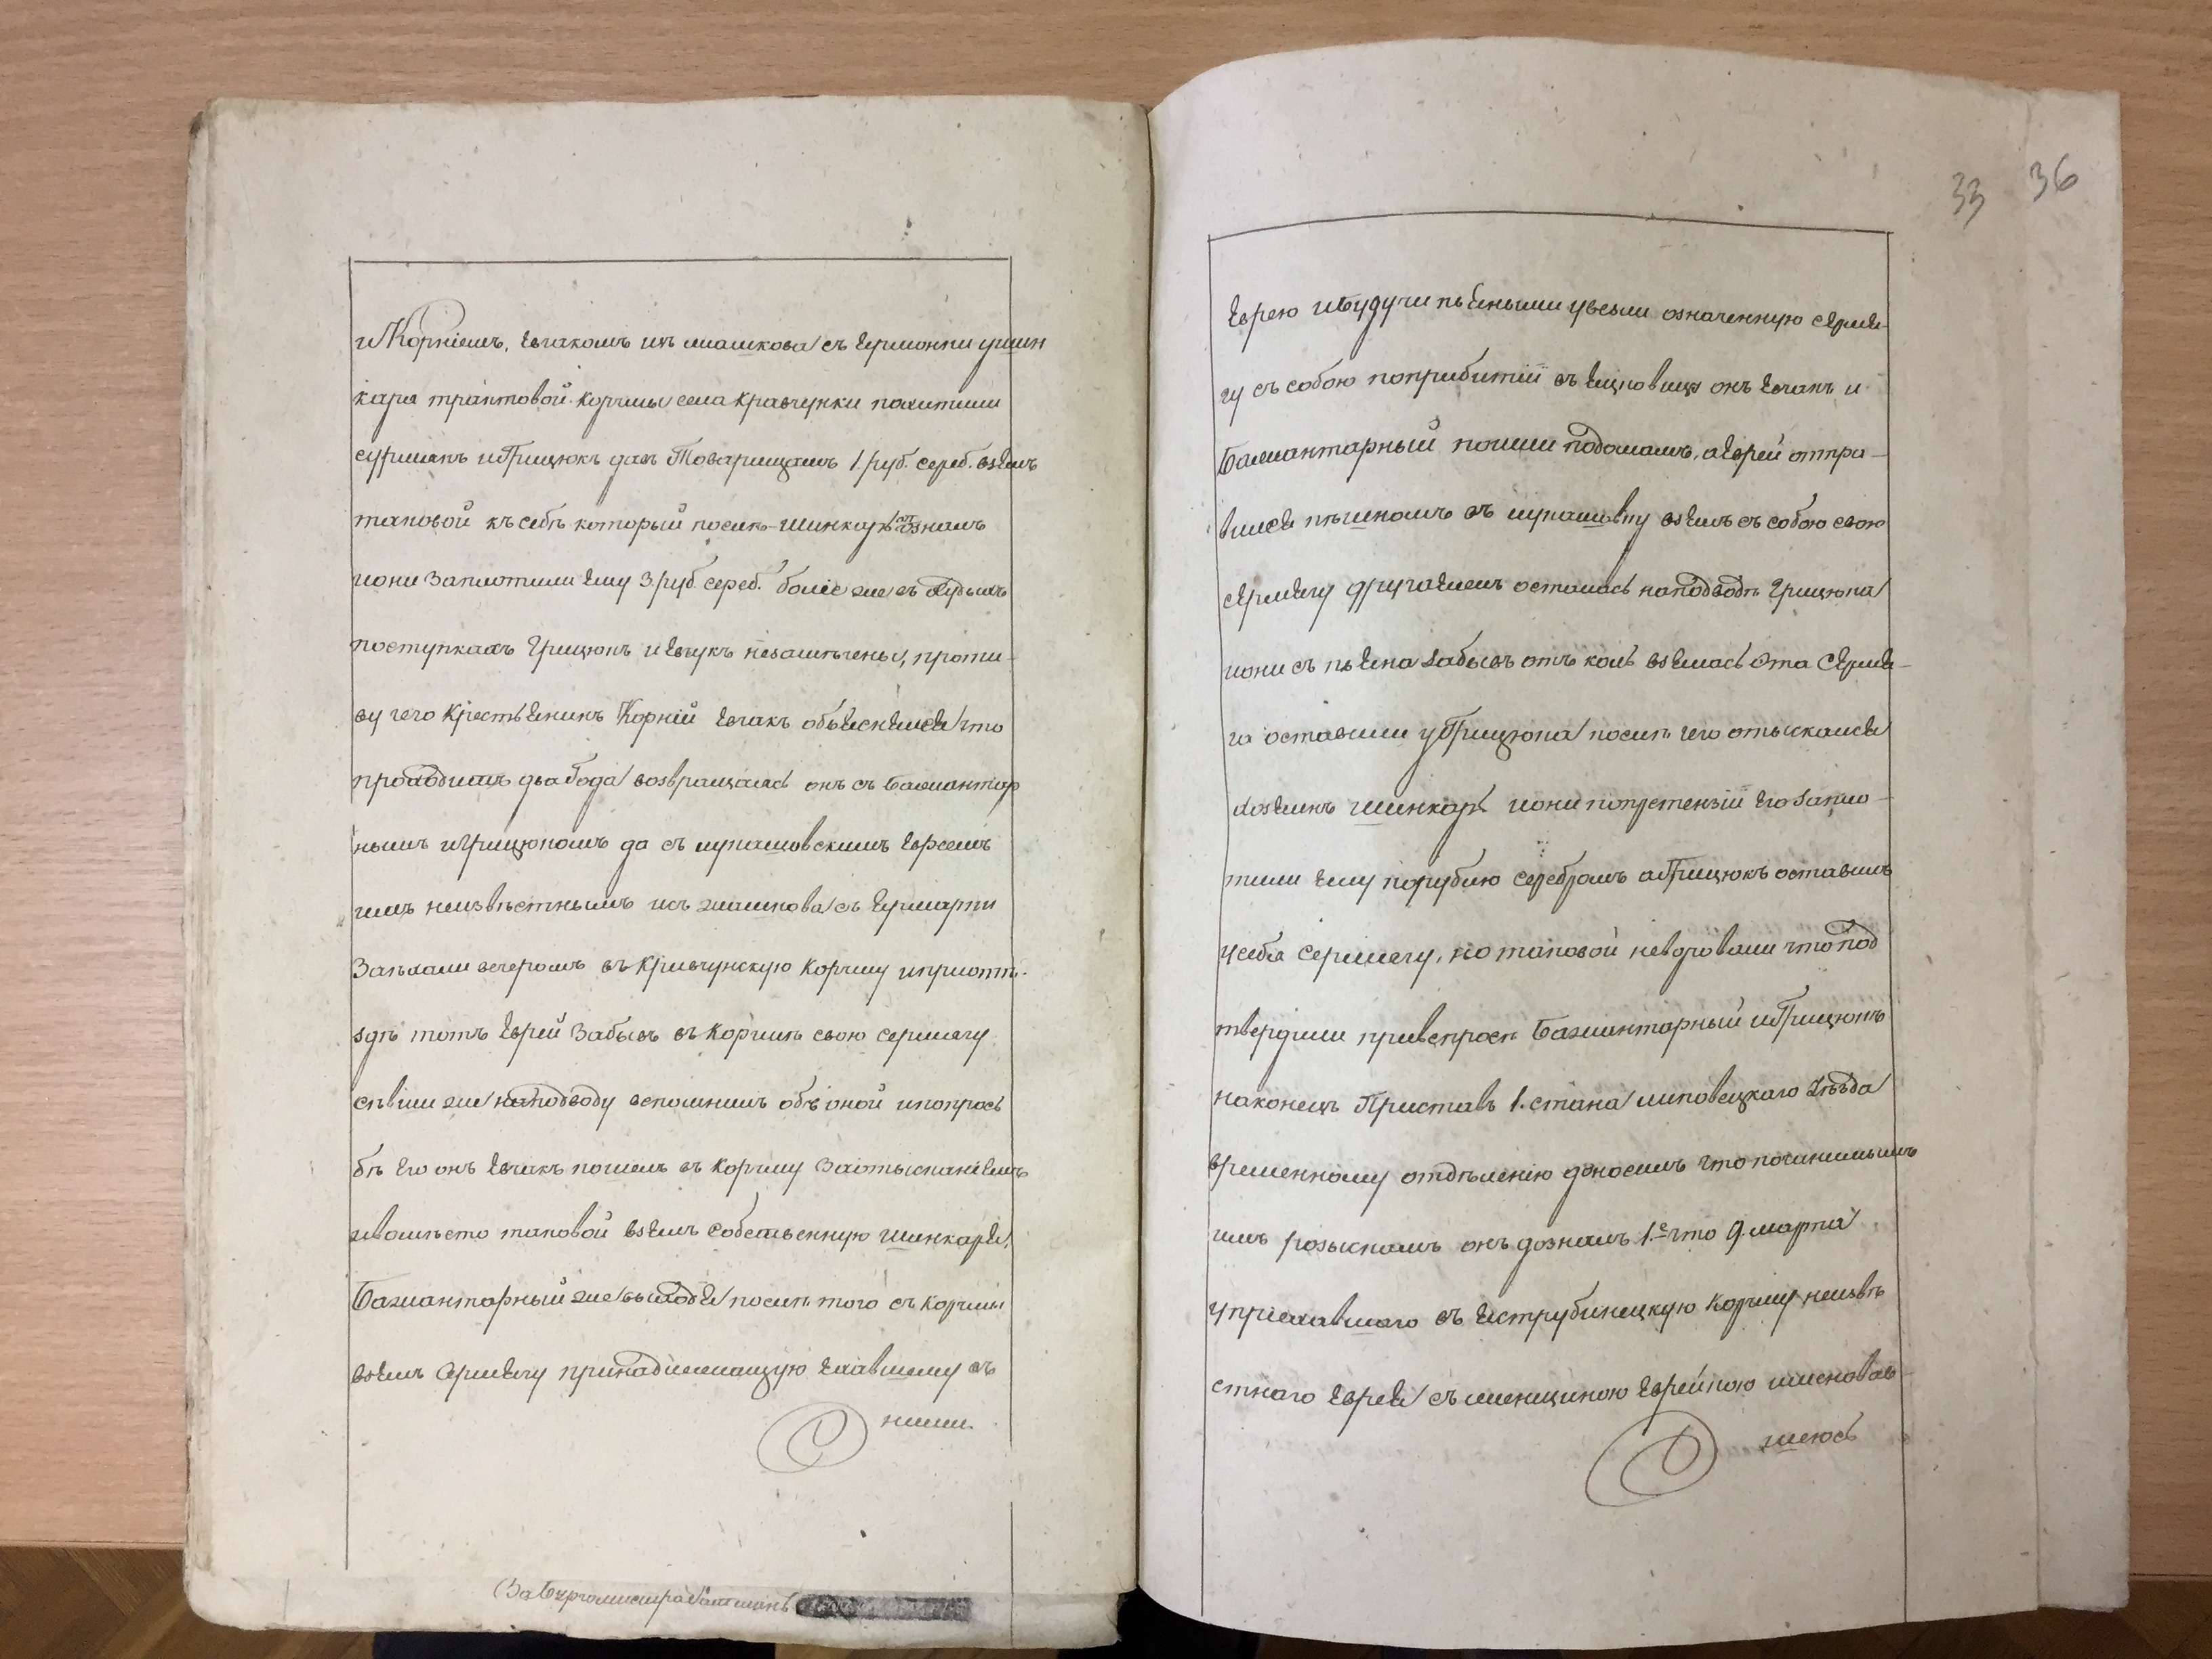 и Корніемъ, Евчакомъ изъ машкова съ Ермонки у шин
каря трактовой корчмы села Кравчунки похитили
сурмякъ и Грицюкъ давъ Товарищамъ 1. руб. сереб. взялъ
таковой къ себѣ который послѣ шинкарьознавъ
и они Заплотили ему 3. руб. сереб. боліе же въ худыхъ
поступкахъ Грицюкъ и Евчукъ незамѣчены, проти-
ву чего Крестьянинъ Корній Евчакъ объяснялся что
проходилъ два года возвращаясь онъ съ Бажантар
нымъ и Грицюкомъ да съ лукашовскимъ Евреемъ
имъ неизвѣстнымъ изъ жашкова съ Ермарки
Заѣхали вечеромъ въ Кривчунскую Корчму и приотъѣ-
здѣ тотъ Еврей Забывъ въ Корчмѣ свою сермягу
сѣвши же на подводу вспомнилъ объ оной и по прось
бѣ Его онъ Евчакъ пошелъ въ Корчму За отысканіемъ
и вомѣсто таковой взялъ собственную шинкаря,
Бажантарный же выходя послѣ того съ Корчмы
взялъ Сермягу принадлежащую Ехавшему съ
ними
За Бургомистра
33 36
Еврею и будучи пьяными увезли означенную сермя-
гу съ собою по прибытіи въ Яцковицу онъ Евчакъ и
Бажантарный пошли по домамъ, а Еврей отпра-
вился пѣшкомъ въ лукашовку взялъ съ собою свою
сермягу другая же осталась на подводѣ Грицюка
и они съ пьяна Забывъ отъ коль взялась Эта Сермя-
га оставили у Грицюка послѣ чего отыскался
хозяинъ шинкарь и они по претензій Его Запло-
тили Ему по рублю серебромъ а Грицюкъ оставилъ
у себя сермягу, но таковой неворовали что под
твердили при вспросѣ Бажантарный и Грицюкъ
наконецъ Приставъ 1. стана липовецкаго Уѣзда
временному отдѣленію доноситъ что по чинимымъ
имъ розыскамъ онъ дозналъ 1.е что 9. марта
у приехавшаго въ Яструбинецкую Корчму неизвѣ
стнаго Еврея съ женщиною Еврейкою именовав-
шеюсь